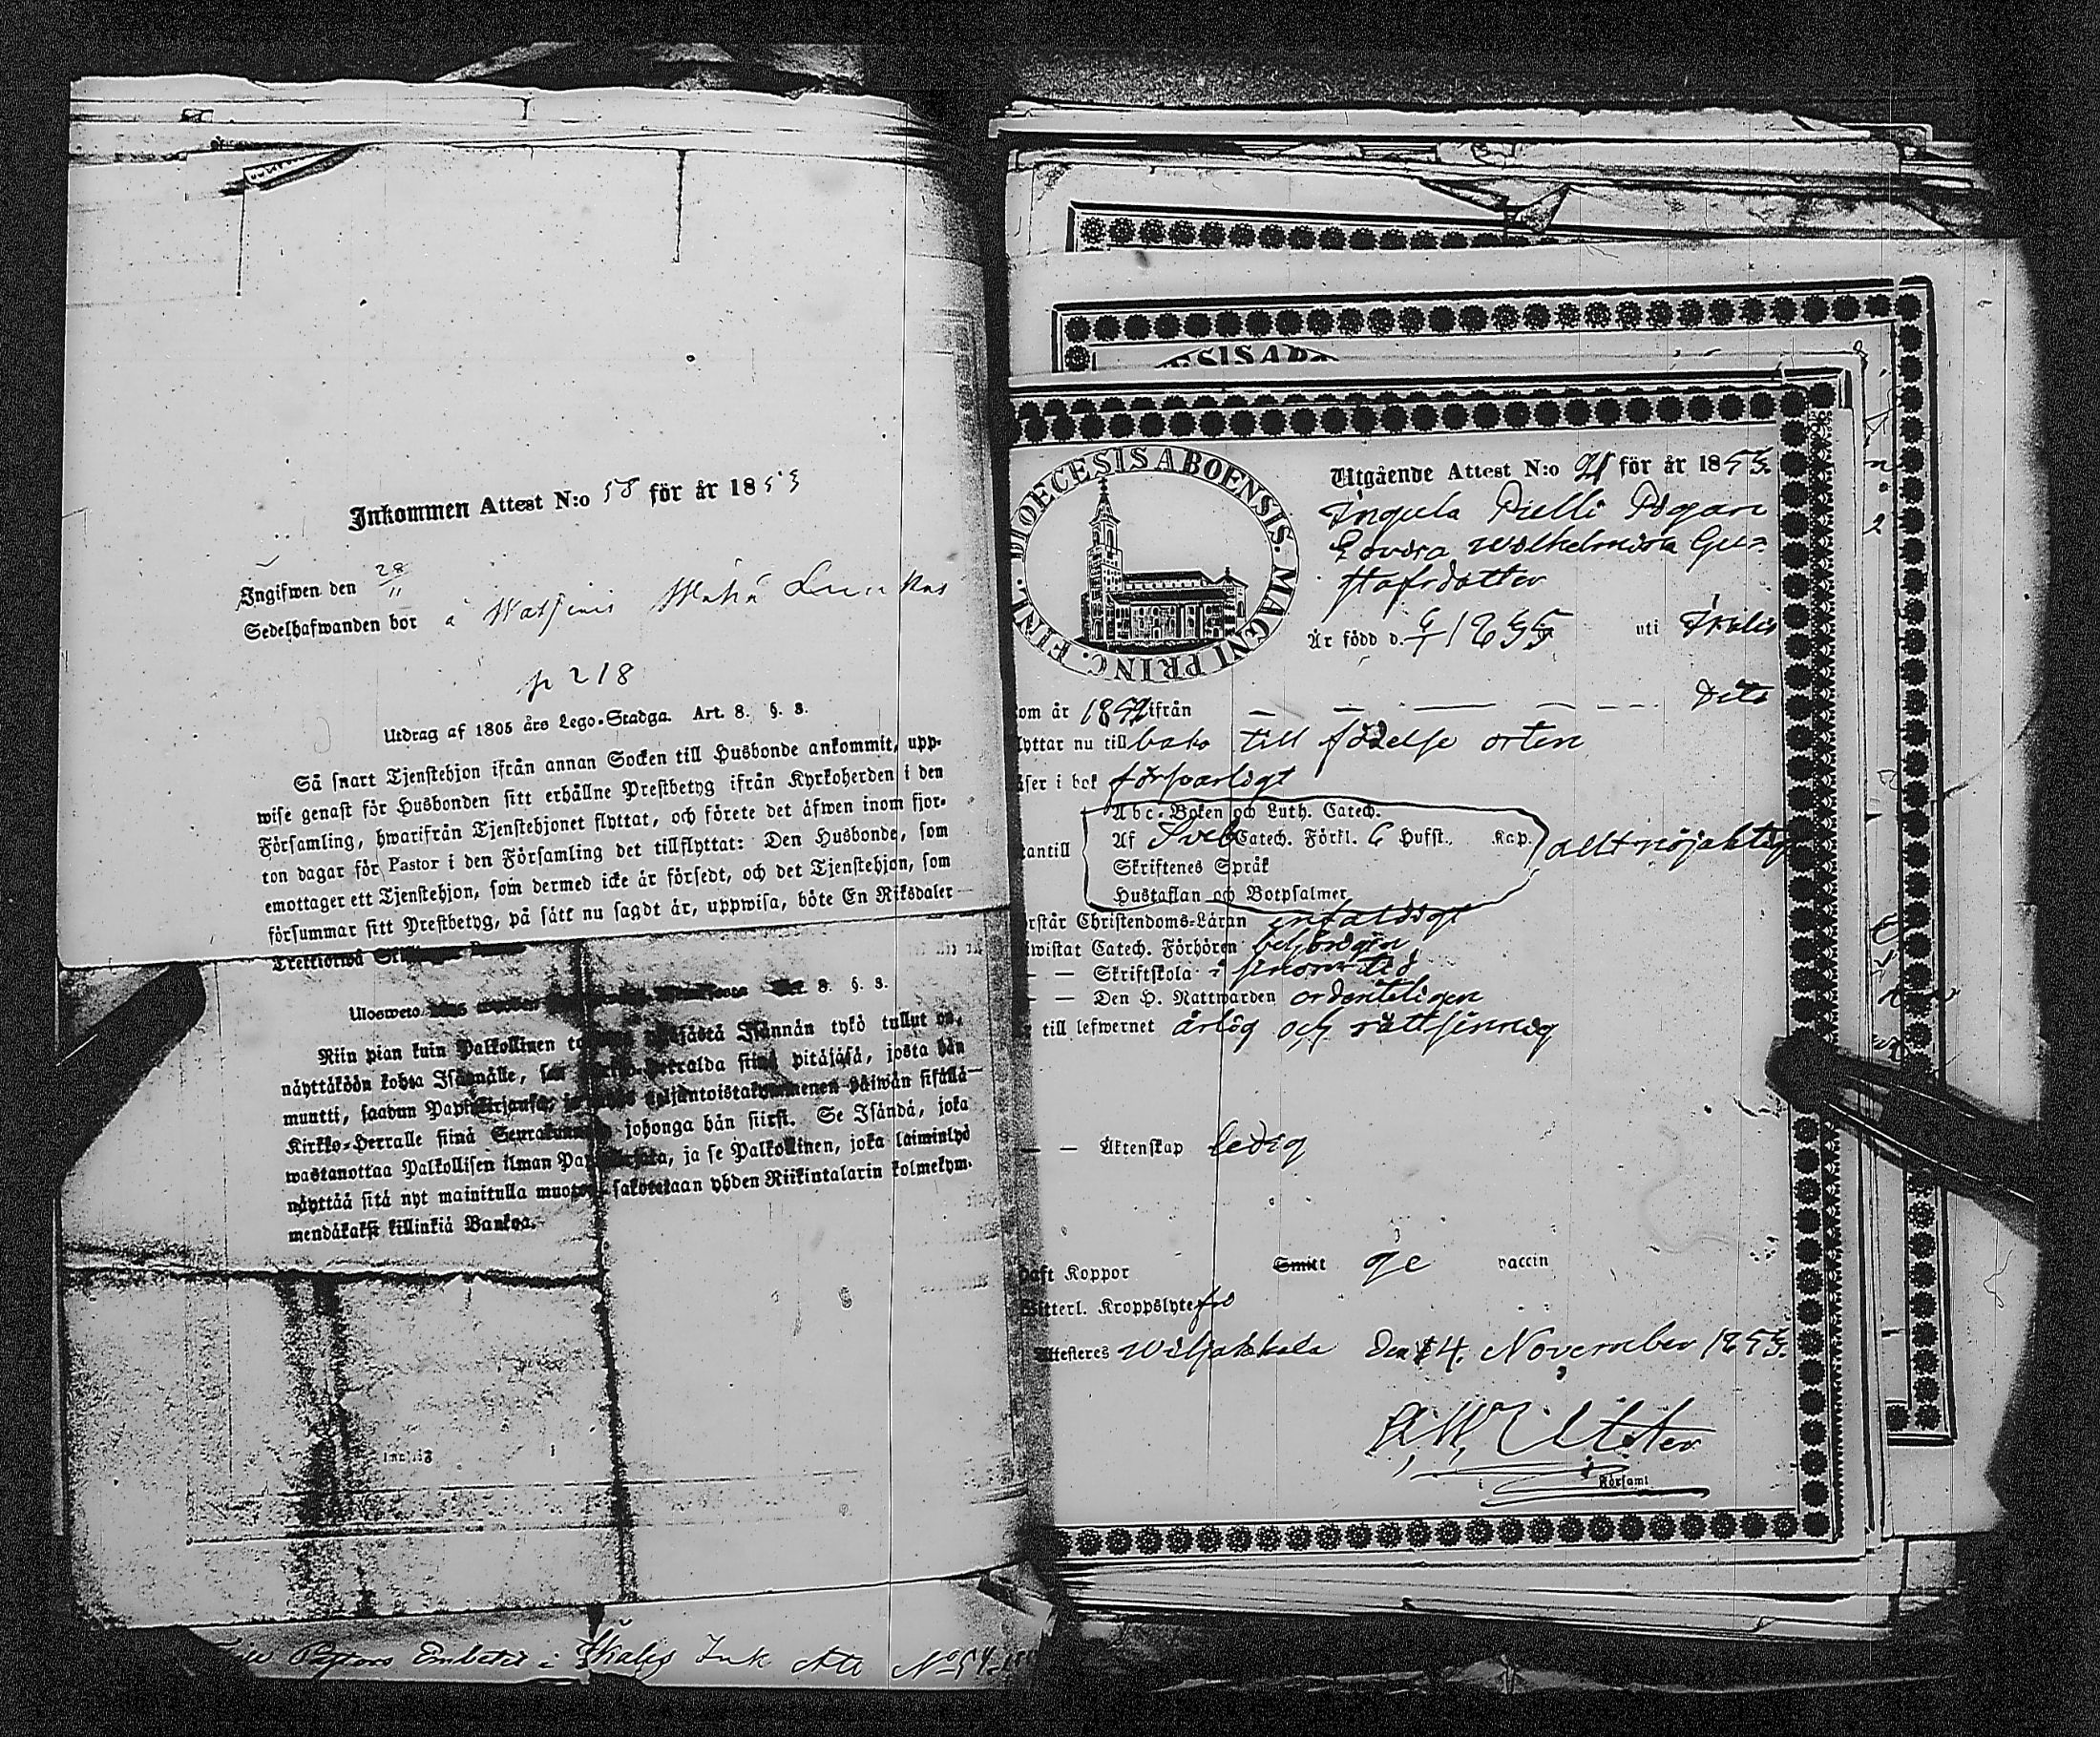 Inkommen Attest N:o 58 för år 1853
Ingifwen den 28/11
Sedelhafwanden bor å
p 218
Utdrag af 1805 års Lego-Stadga. Art. 8. §. 8.
Så snart Tjenstehjon ifrån annan Socken till Husbonde ankommit, upp-
wise genast för Husbonden sitt erhållne Prestbetyg ifrån Kyrkoherden i den
Församling, hwarifrån Tjenstehjonet flyttat, och förete det äfwen inom fjor-
ton dagar för Pastor i den Församling det tillflyttat: Den Husbonde, som
emottager ett Tjenstehjon, som dermed icke är försedt, och det Tjenstehjon, som
försummar sitt Prestbetyg, på sätt nu sagdt är, uppwisa, böte En Riksdaler
Trettiotwå
Ulosweto 8. §. 8.
Niin pian kuin Palkollinen Isännän tykö tullut on,
näyttäköön kohta Isännälle, siinä pitäjäsä, josta hän
muutti, saadun Papinkirjansa, neljäntoistakymmenen päiwän sisällä
Kirkko-Herralle siinä Seurakunnasa johonga hän siirsi. Se Isändä, joka
wastanottaa Palkollisen ilman Papinkirjata, ja se Palkollinen, joka laiminlyö
näyttää sitä nyt mainitulla muotoa, sakotetaan yhden Riikintalarin kolmekym-
mendäkaksi killinkiä Bankoa.
Pastors Embetet i Ikalis Ink Att No 54
DIOECESIS ABOENSIS. MAGNI PRINC. FINL.
Utgående Attest N:o 21 för år 1853.
Pigan
Lovisa Wilhelmina Gus-
tafsdotter
Är född d. 1835 uti Ikalis
om år 1852 ifrån — — — — Dito
lyttar nu till baka till födelse orten
äser i bok försvarligt
Abc-Boken och Luth. Catech.
Af Sveb Catech. Förkl. 6 Hufst. Kap.
antill
allt nöjaktigt
Skriftenes Språk
Hustaflan och Botpsalmer
rstår Christendoms-Läran enfaldigt
iwistat Catech. Förhören behörigen
— — Skriftskola i sinom tid
— — Den H. Nattwarden ordenteligen
till lefwernet ärlig och rättsinnig
— — Äktenskap ledig
Haft Koppor Smitt ge vaccin
Witterl. Kroppslyte fri
Attesteres Wiljakkala den 14. November 1853.
i Församl